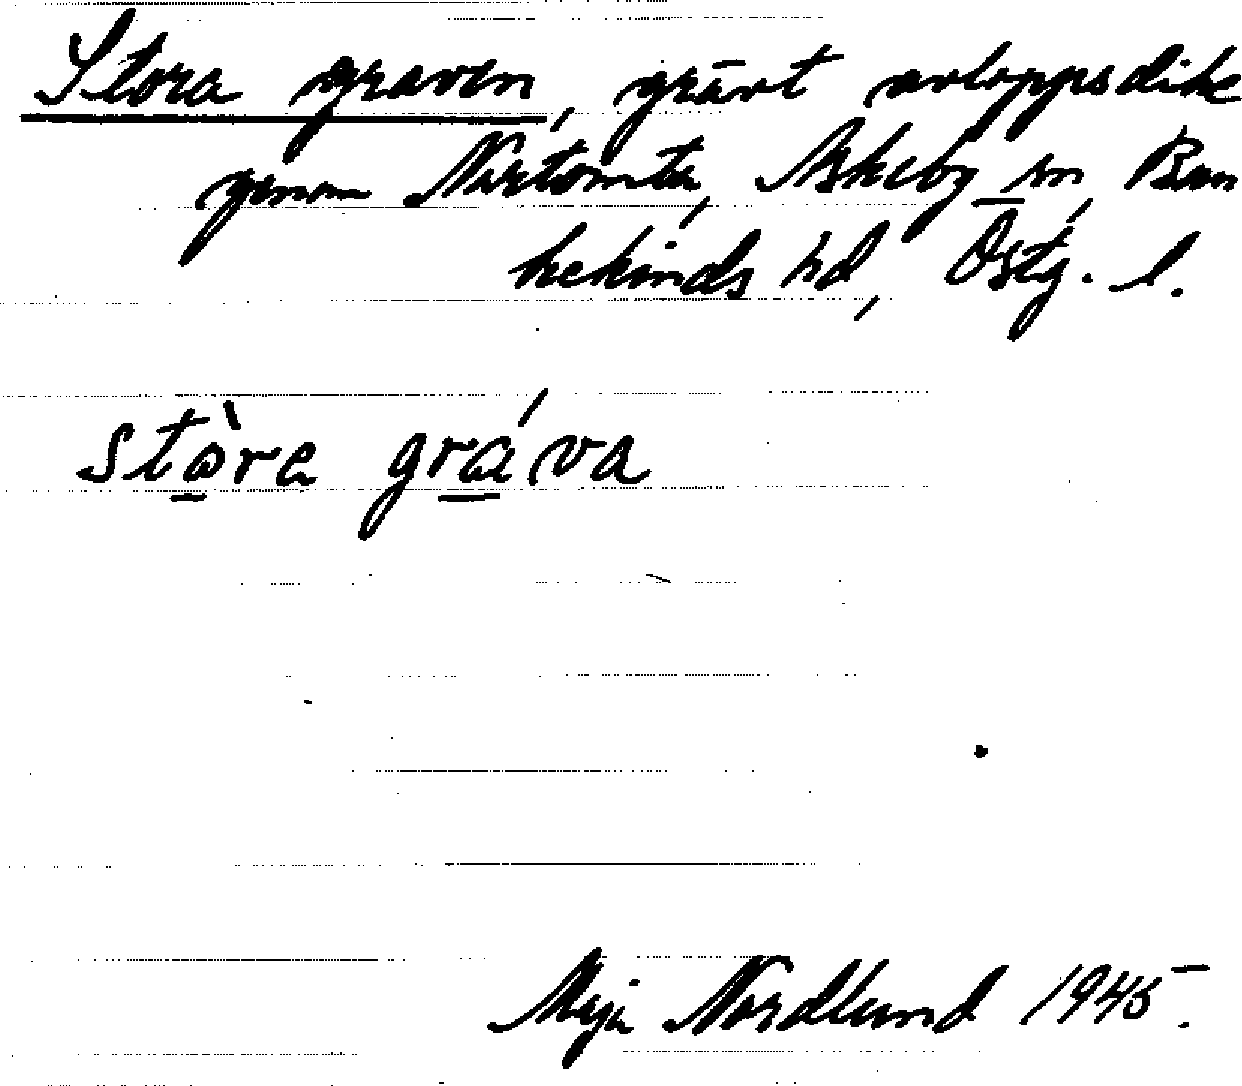 Stora graven, grävt avloppsdike
genom Nartomta, Askeby sn Ban
kekinds hd, Östg. l.
stòra gráva
Maja Nordlund 1945.